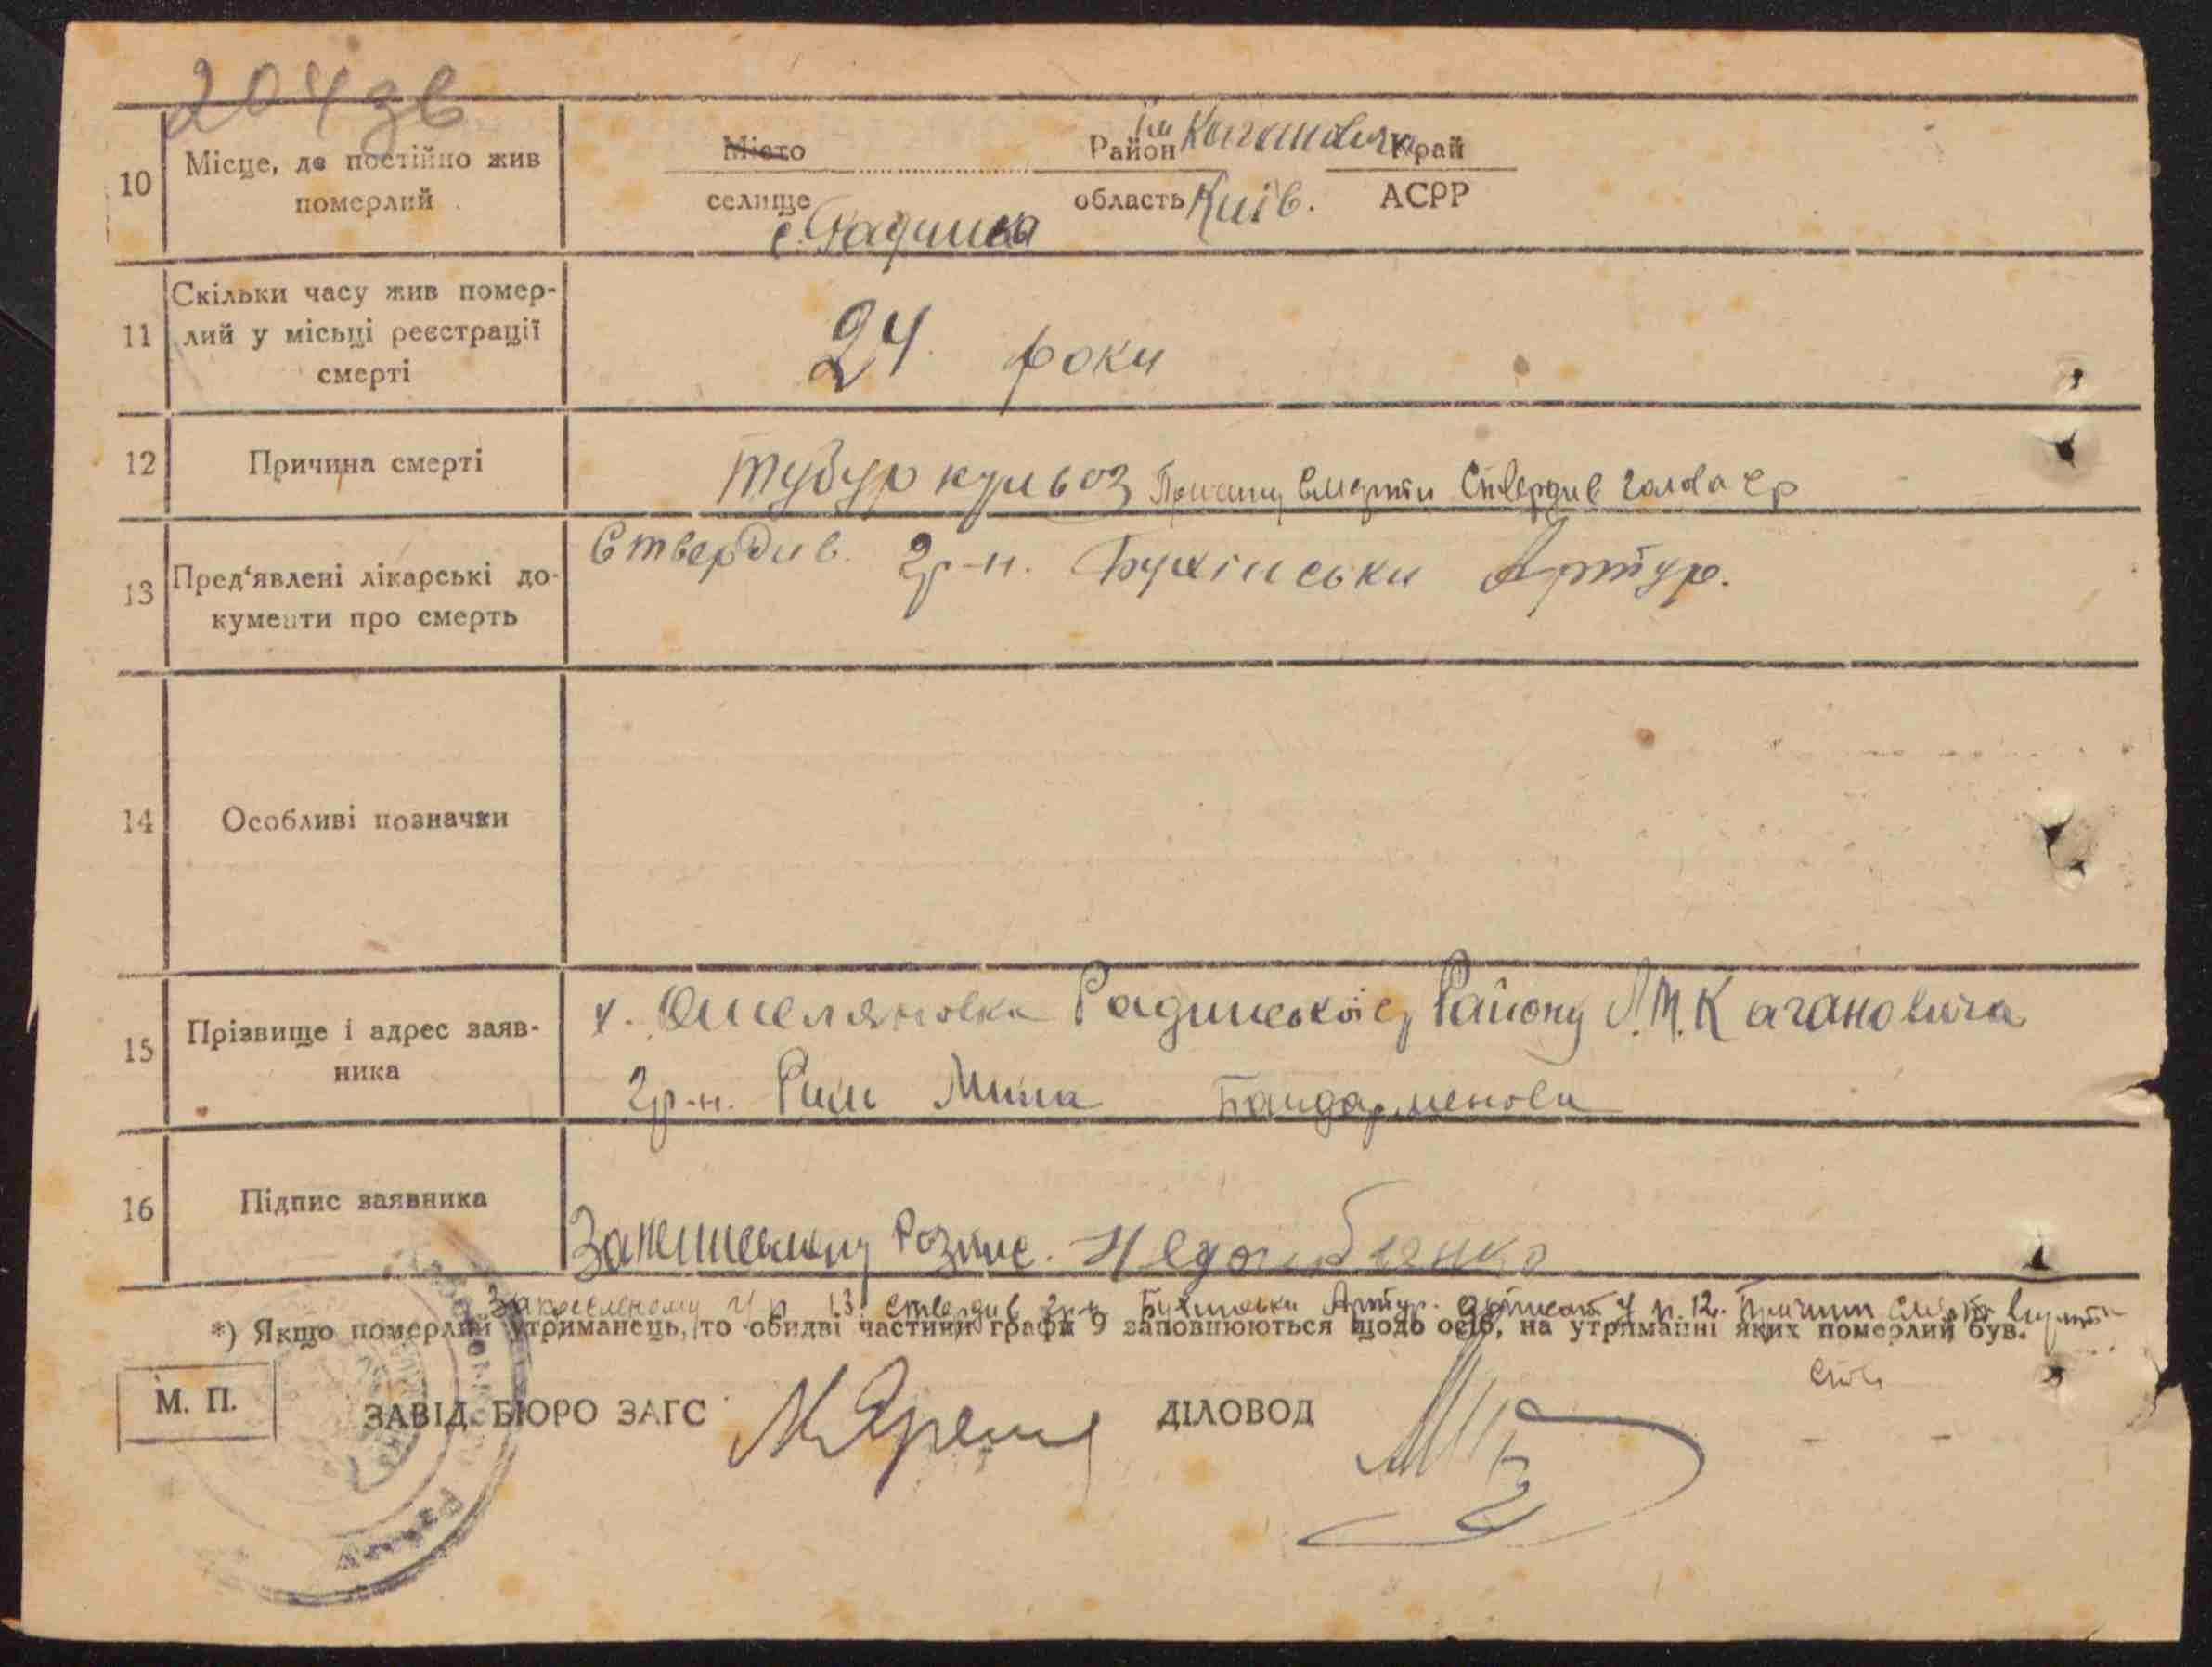 204зв
10 Місце, де постійно жив померлий
Місто Район ім Кагановича Край
селище область Київ. АСРР
с. Радинка
11 Скільки часу жив помер-
лий у місьці реєстрації
смерті
24 роки
12 Причина смерті
тубуркульоз Причину смерти Ствердив голова ср
13 Пред'явлені лікарські до-
кументи про смерть
Ствердив. гр-н. Бухінськи Артур.
14 Особливі позначки
15 Прізвище і адрес заяв-
ника
х. Омеляновка Радинської ср Району Л.М. Кагановича
гр-н. Мина
16 Підпис заявника
Закреслену
Закресленому у р 13 ствердив гр-н Бухинськи Артур. у п. 12. Причини
*) Якщо померлий утриманець, то обидві частини графи 9 заповнюються щодо осіб, на утриманні яких померлий був.
М. П.
ЗАВІД. БЮРО ЗАГС ДІЛОВОД